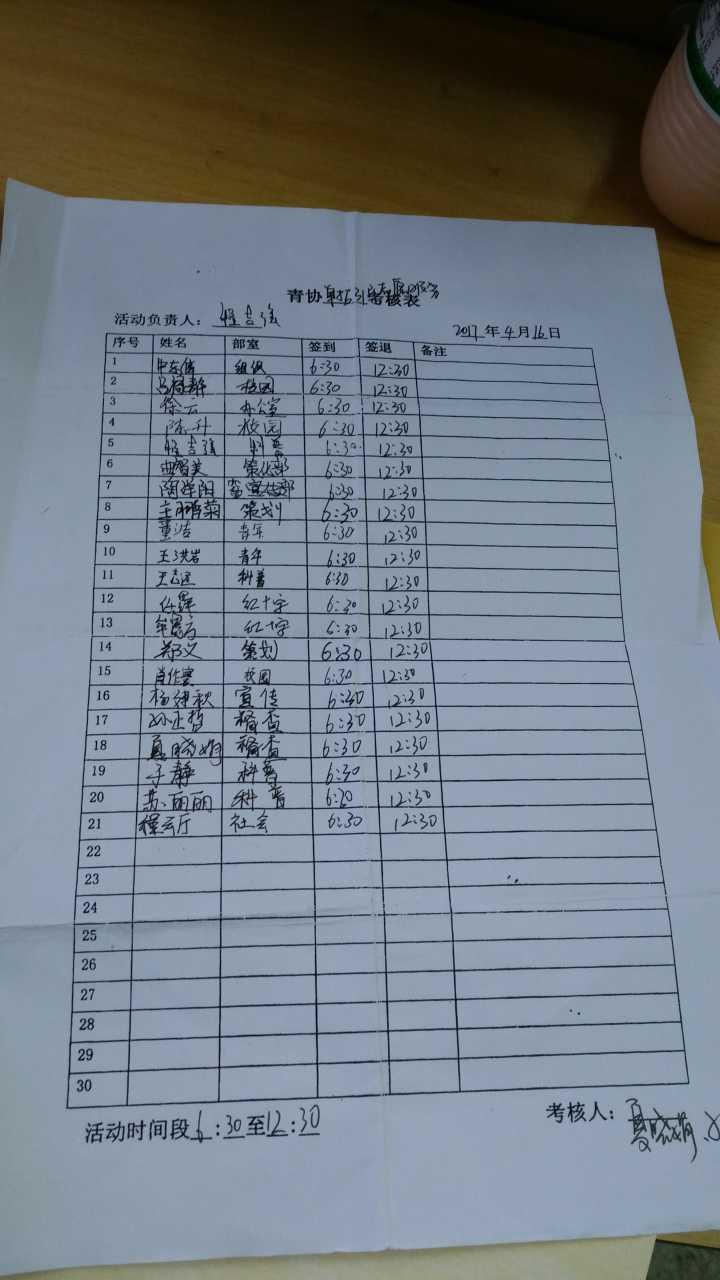 青协 考核表
活动负责人：
2017年4月16日
序号 姓名 部室 签到 签退 备注
1 组织 6:30 12:30
2 马 静 校园 6:30 12:30
3 徐云 办公室 6:30 12:30
4 陈升 校园 6:30 12:30
5 科普 6:30 12:30
6 曲智美 策化部 6:30 12:30
7 陶洋阳 宣传部 6:30 12:30
8 王鹏菊 策划 6:30 12:30
9 董洁 青年 6:30 12:30
10 王洪岩 青年 6:30 12:30
11 王志远 科普 6:30 12:30
12 红十字 6:30 12:30
13 红十字 6:30 12:30
14 郑义 策划 6:30 12:30
15 校园 6:30 12:30
16 杨 秋 宣传 6:30 12:30
17 孙亚哲 稽查 6:30 12:30
18 夏晓娟 稽查 6:30 12:30
19 于静 科普 6:30 12:30
20 苏丽丽 科普 6:30 12:30
21 程云厅 社会 6:30 12:30
22
23
24
25
26
27
28
29
30
活动时间段6:30至12:30
考核人：夏晓娟